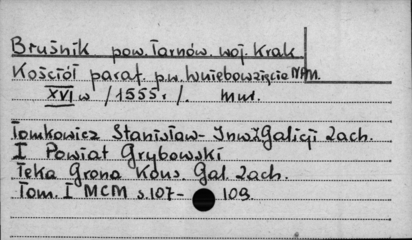 Bruśnik pow. Tarnów. woj. Krak
Kościół paraf. p.w. Wniebowzięcia NPM.
XVI w /1555r/. mur.
Tomkowicz Stanisław - Inw. Galicji Zach.
I Powiat Grybowski
Teka Grona Kons. Gal. Zach.
Tom. I MCM s.107- 109.